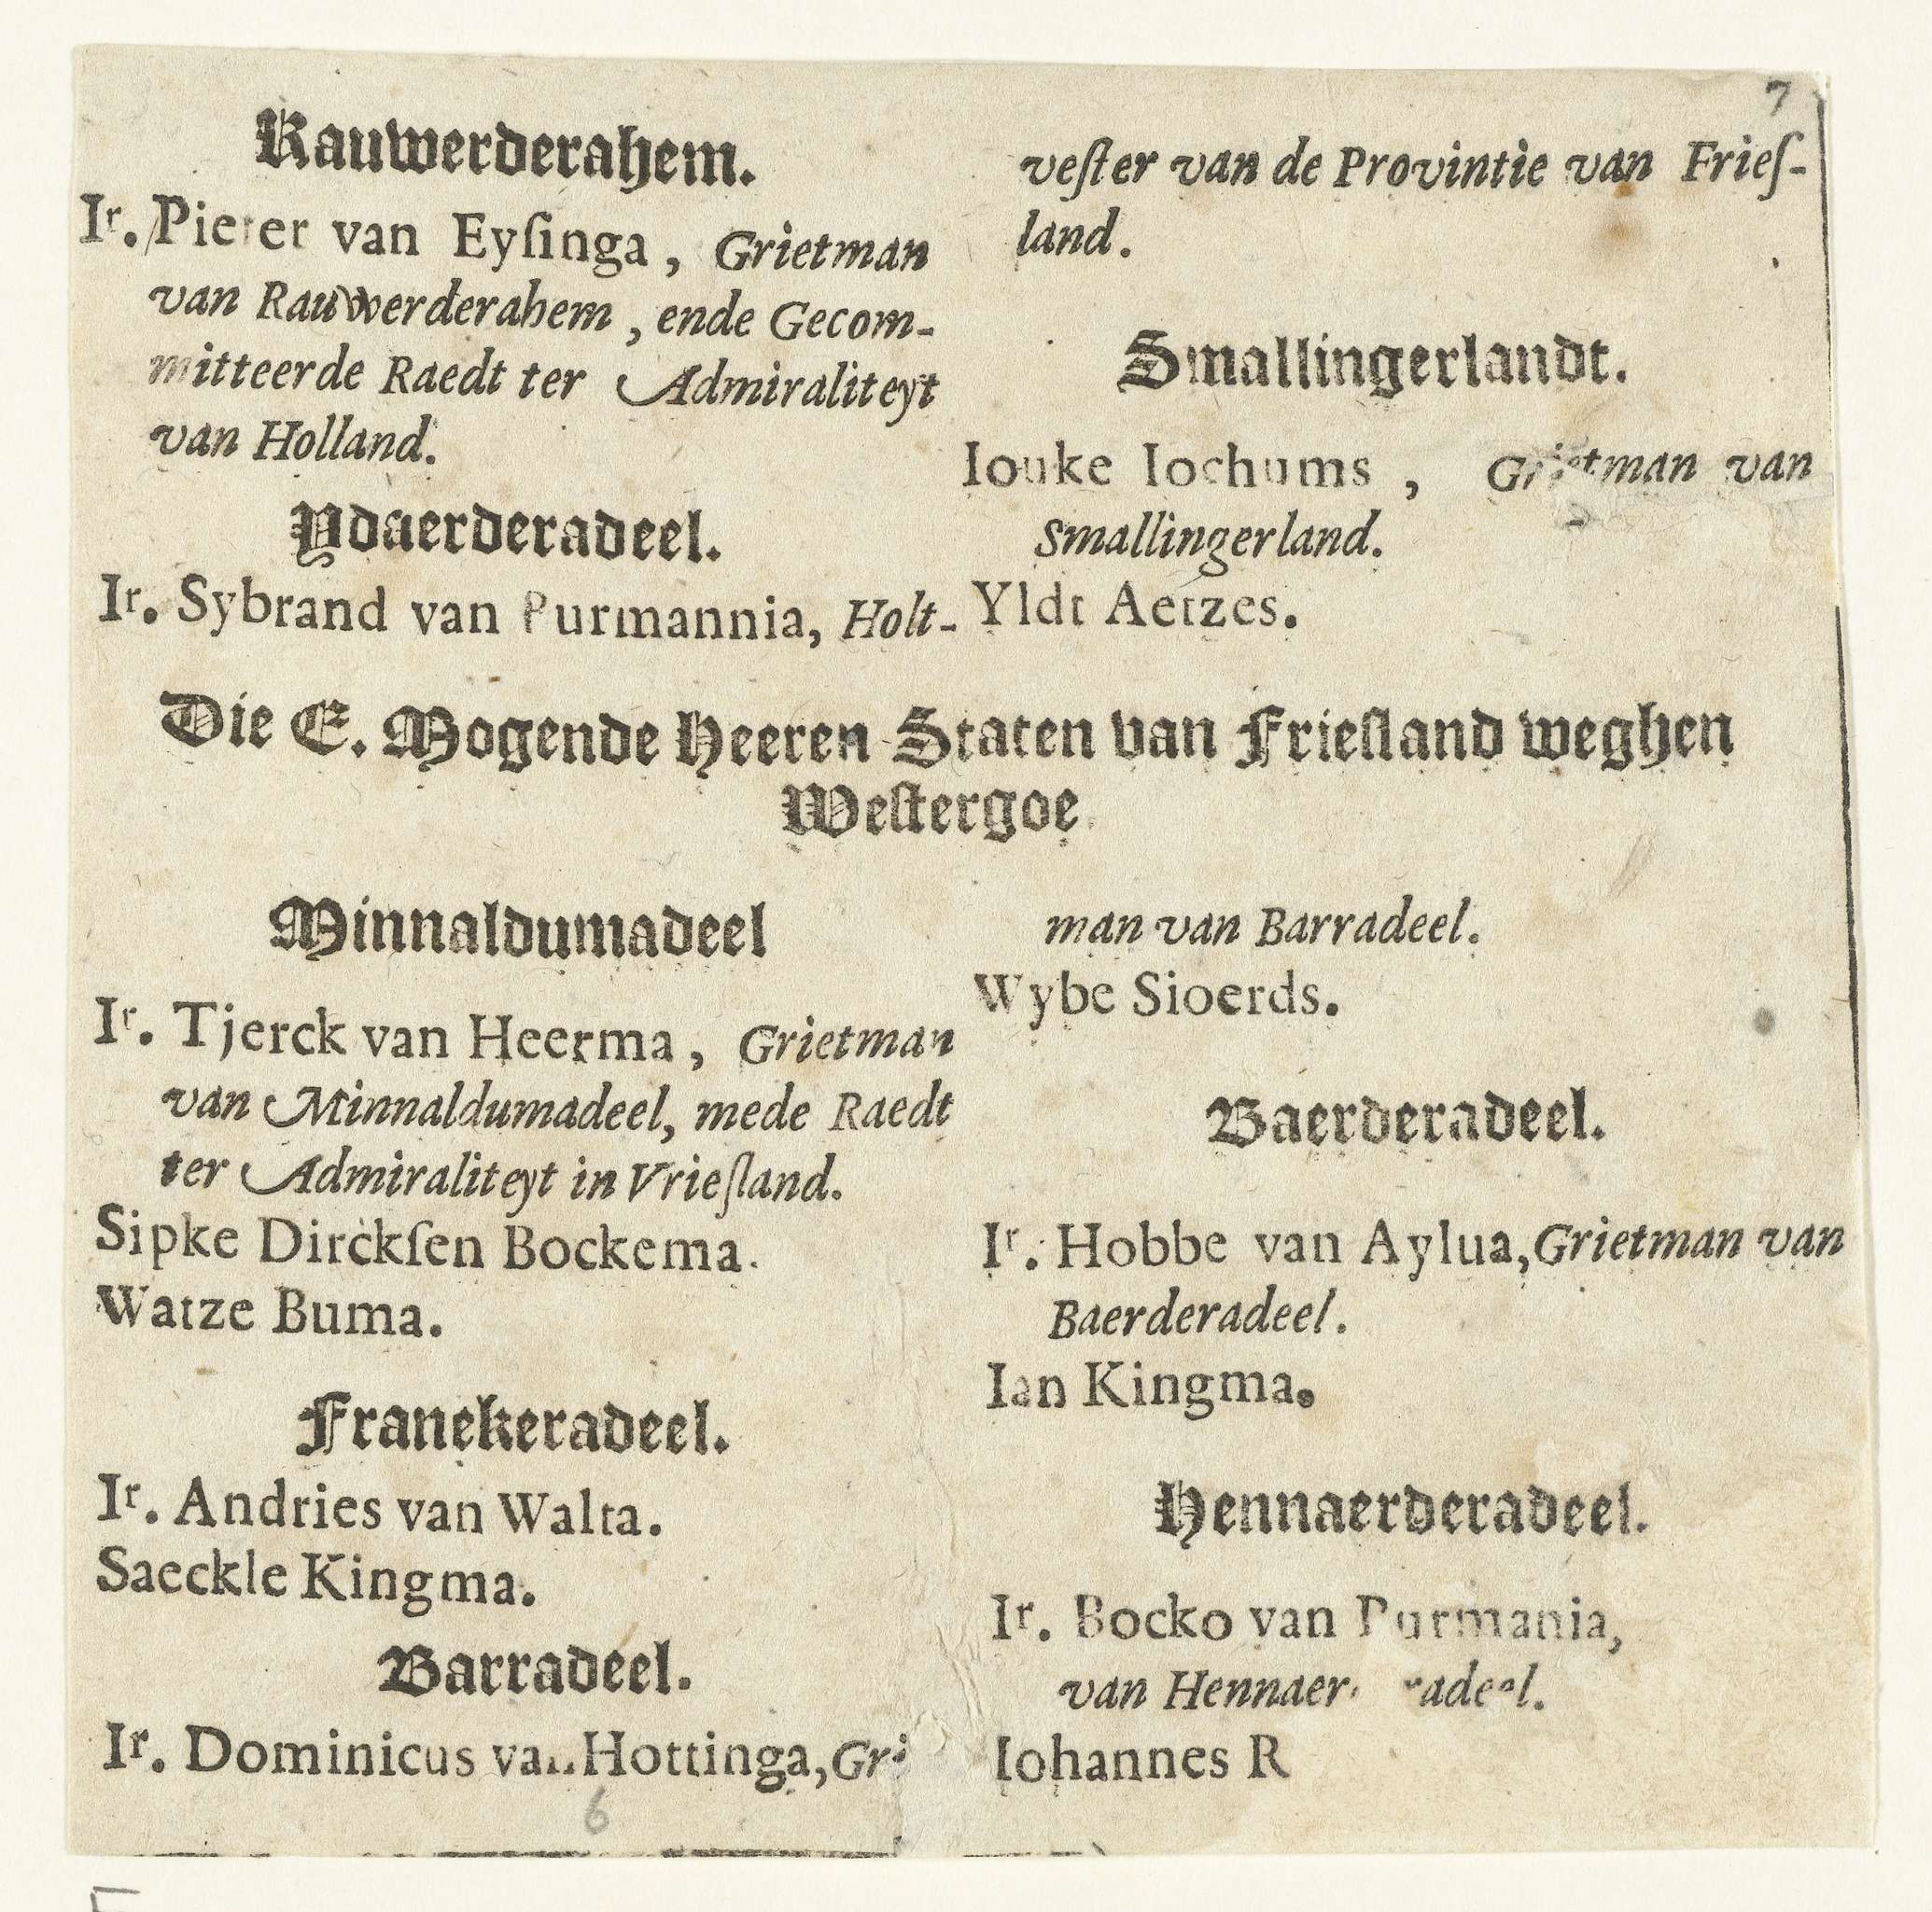 7
Rauwerderahem.
Ir. Pieter van Eyſinga, Grietman
van Rauwerderahem, ende Gecom-
mitteerde Raedt ter Admiraliteyt
van Holland.
Ydaerderadeel.
Ir. Sybrand van Purmannia, Holt-
veſter van de Provintie van Frieſ-
land.
Smallingerlandt.
Iouke Iochums, Grietman van
Smallingerland.
Yldt Aetzes.
Die E. Mogende Heeren Staten van Frieſland weghen
Weſtergoe
Minnaldumadeel
Ir. Tjerck van Heerma, Grietman
van Minnaldumadeel, mede Raedt
ter Admiraliteyt in Vrieſland.
Sipke Dirckſen Bockema.
Watze Buma.
Franekeradeel.
Ir. Andries van Walta.
Saeckle Kingma.
Barradeel.
Ir. Dominicus van Hottinga, Gri
6
man van Barradeel.
Wybe Sioerds.
Baerderadeel.
Ir. Hobbe van Aylua, Grietman van
Baerderadeel.
Ian Kingma.
Hennaerderadeel.
Ir. Bocko van Purmania,
van Hennaer radeel.
Iohannes R